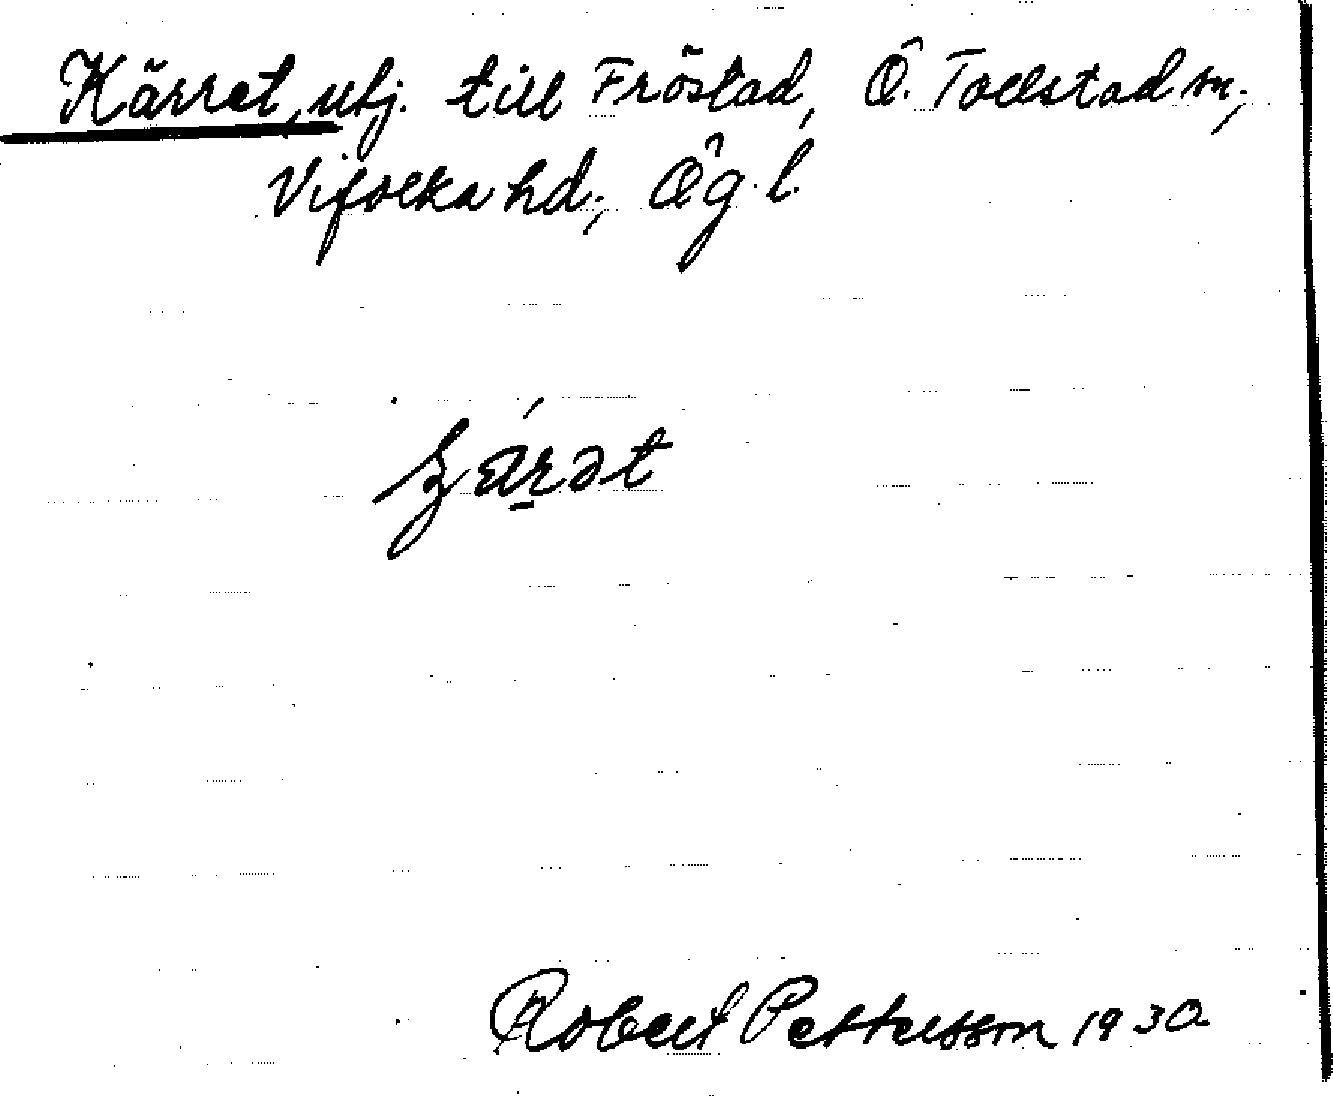 Kärret, utj. till Fröstad, Ö. Tollstad sn;
Vifolka hd; Ög. l.
Robert Pettersson 1930